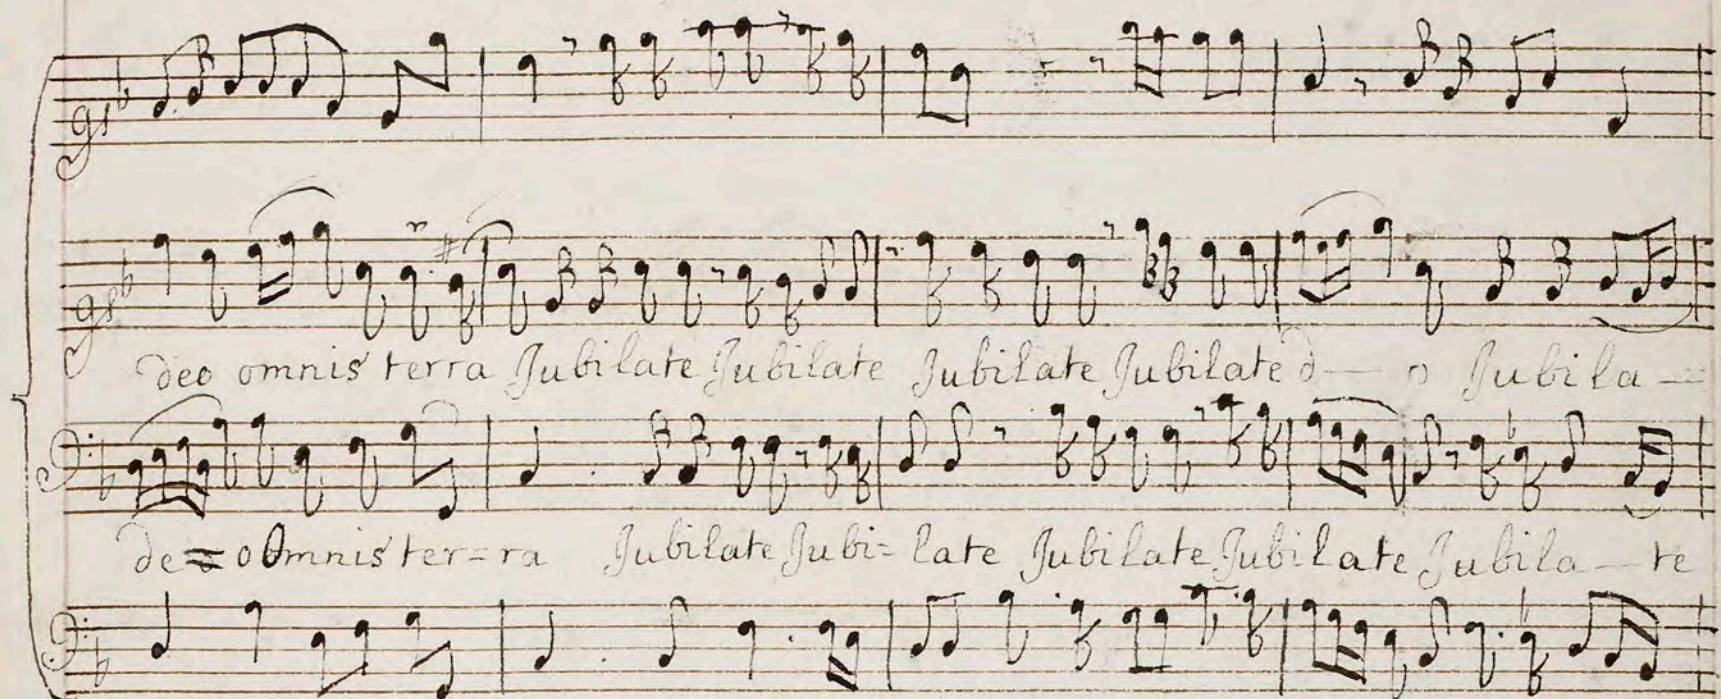 deo omnis terra Jubilate Jubilate Jubilate Jubilate d — o Jubila —
de = o Omnis ter = ra Jubilate Jubi = late Jubilate Jubilate Jubila — te